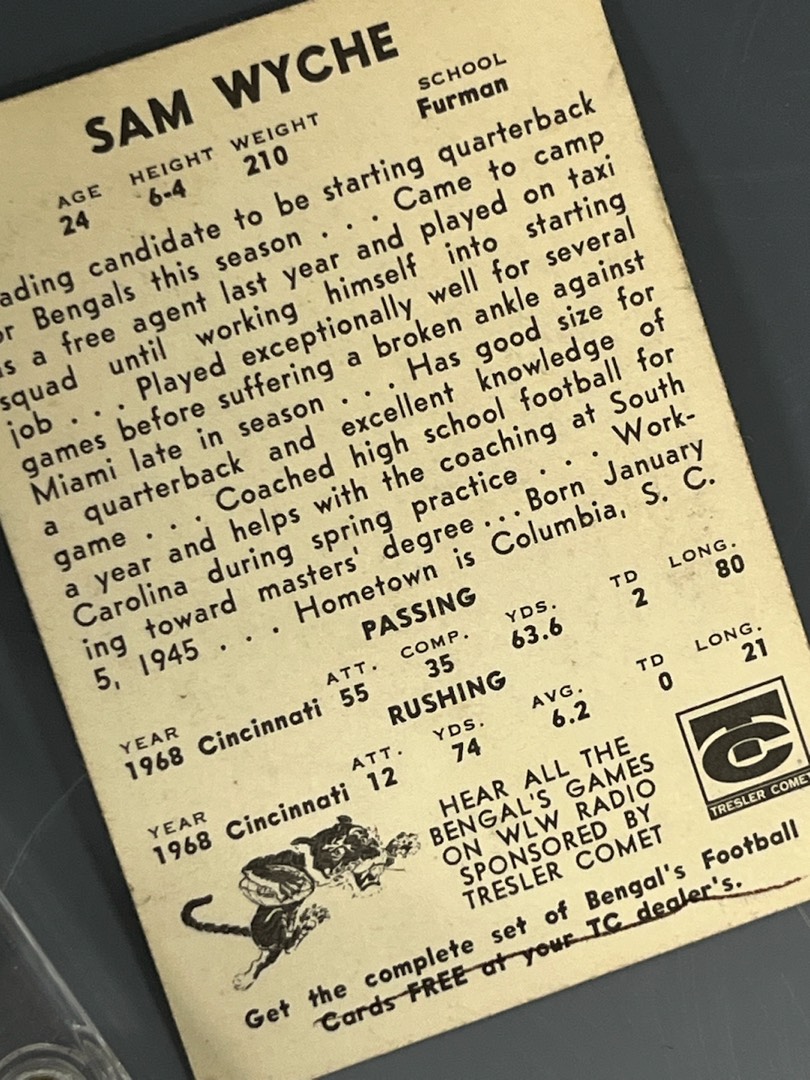 SAM WYCHE
AGE HEIGHT WEIGHT SCHOOL
24 6-4 210 Furman
ading candidate to be starting quarterback
or Bengals this season . . . Came to camp
s a free agent last year and played on taxi
squad until working himself into starting
job . . . Played exceptionally well for several
games before suffering a broken ankle against
Miami late in season . . . Has good size for
a quarterback and excellent knowledge of
game . . . Coached high school football for
a year and helps with the coaching at South
Carolina during spring practice . . . Work-
ing toward masters' degree . . . Born January
5, 1945 . . . Hometown is Columbia, S. C.
PASSING
YEAR ATT. COMP. YDS. TD LONG.
1968 Cincinnati 55 35 63.6 2 80
RUSHING
YEAR ATT. YDS. AVG. TD LONG.
1968 Cincinnati 12 74 6.2 0 21
HEAR ALL THE
BENGAL'S GAMES
ON WLW RADIO
SPONSORED BY
TRESLER COMET
TC
TRESLER COME
Get the complete set of Bengal's Football
Cards FREE at your TC dealer's.